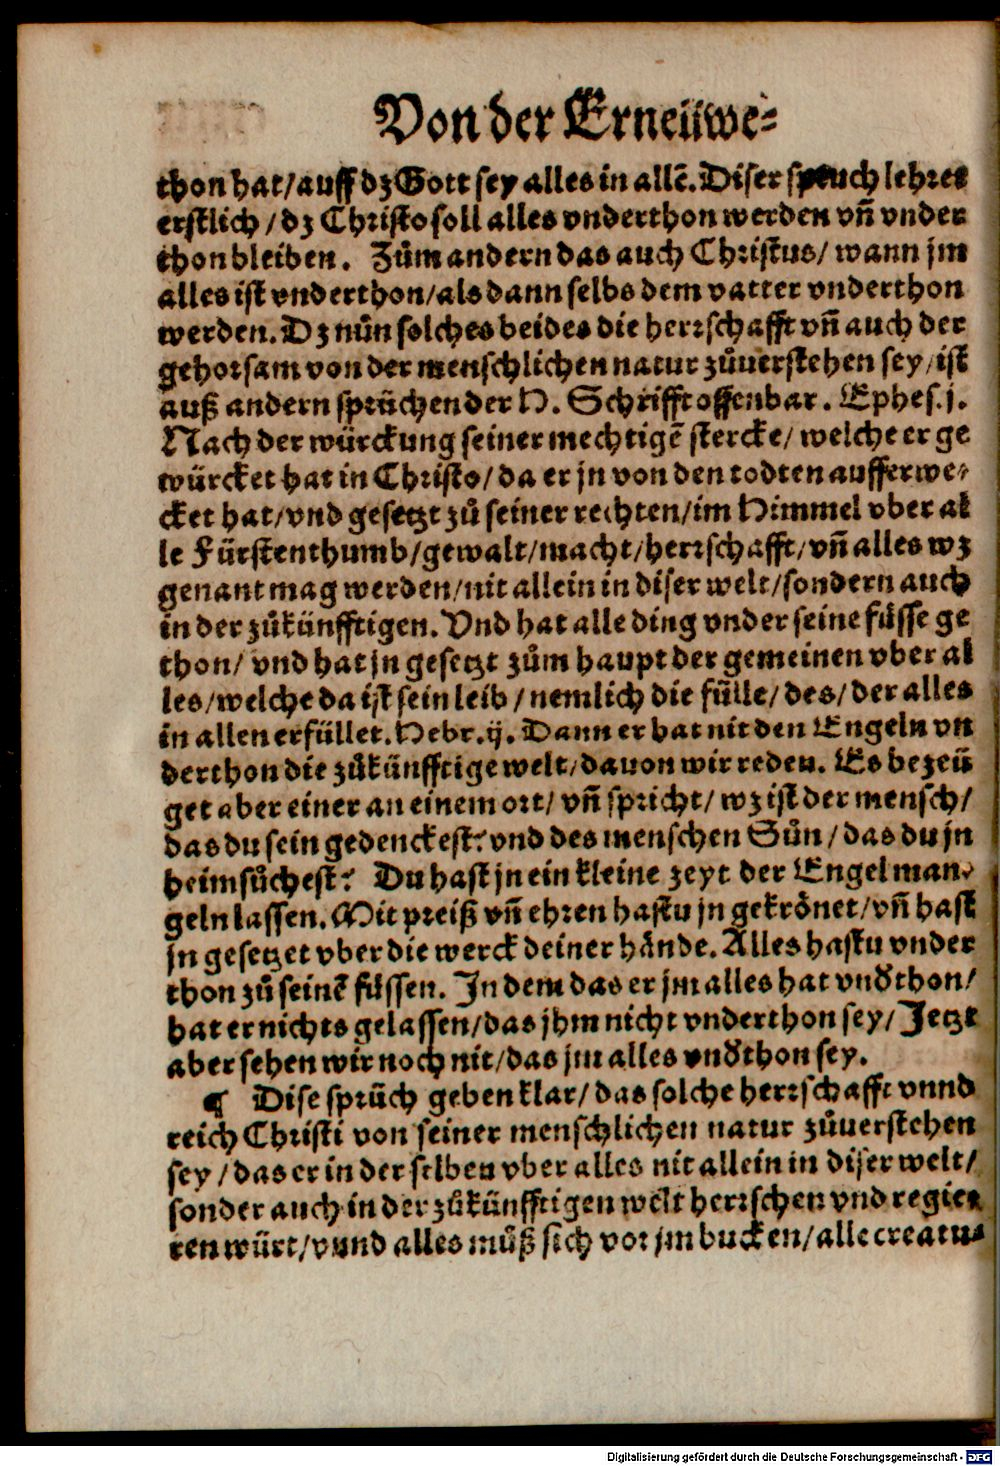 Von der Erneüwe⸗
thon hat/ auff dz Gott sey alles in allē. Diser spruch lehret
erstlich / dz Christo soll alles vnderthon werden vn̄ vnder
thon bleiben. Zům andern das auch Christus/ wann jm
alles ist vnderthon/ als dann selbs dem vatter vnderthon
werden. Dz nůn solches beides die herrschafft vn̄ auch der
gehorsam von der menschlichen natur zůuerstehen sey/ ist
auß andern sprüchen der H. Schrifft offenbar. Ephes. j.
Nach der würckung seiner mechtigē stercke/ welche er ge
würcket hat in Christo/ da er jn von den todten aufferwe⸗
cket hat/ vnd gesetzt zů seiner rechten/ im Himmel vber al
le Fürstenthumb/ gewalt/ macht/ herrschafft/ vn̄ alles wz
genant mag werden/ nit allein in diser welt/ sondern auch
in der zůkünfftigen. Vnd hat alle ding vnder seine füsse ge
thon/ vnd hat jn gesetzt zům haupt der gemeinen vber al
les/ welche da ist sein leib / nemlich die fülle/ des/ der alles
in allen erfüllet. Hebr. ij. Dann er hat nit den Engeln vn
derthon die zůkünfftige welt/ dauon wir reden. Es bezeü
get aber einer an einem ort/ vn̄ spricht/ wz ist der mensch/
das du sein gedenckest? vnd des menschen Sůn / das du jn
heimsůchest? Du hast jn ein kleine zeyt der Engel man⸗
geln lassen. Mit preiß vn̄ ehren hastu jn gekrönet/ vn̄ hast
jn gesetzet vber die werck deiner hånde. Alles hastu vnder
thon zů seinē füssen. In dem das er jm alles hat vnd̕thon/
hat er nichts gelassen/ das jhm nicht vnderthon sey/ Jetzt
aber sehen wir noch nit/ das jm alles vnd̕thon sey.
¶ Dise sprüch geben klar/ das solche herrschafft vnnd
reich Christi von seiner menschlichen natur zůuerstehen
sey / das er in der selben vber alles nit allein in diser welt/
sonder auch in der zůkünfftigen welt herrschen vnd regie⸗
ren würt/ vnnd alles můß sich vor jm bucken/ alle creatu⸗
Digitalisierung gefördert durch die Deutsche Forschungsgemeinschaft - DFG